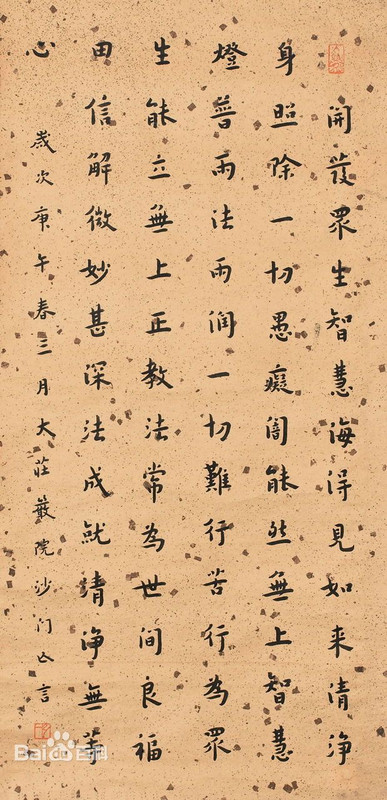 開發眾生智慧海得見如来清淨
身照除一切愚癡闇能然無上智慧
燈普雨法雨润一切難行苦行為眾
生能立無上正教法常為世间良福
田信解微妙甚深法成就清淨無等
心
歲次庚午春三月大莊嚴院沙门亡言
Bai百科